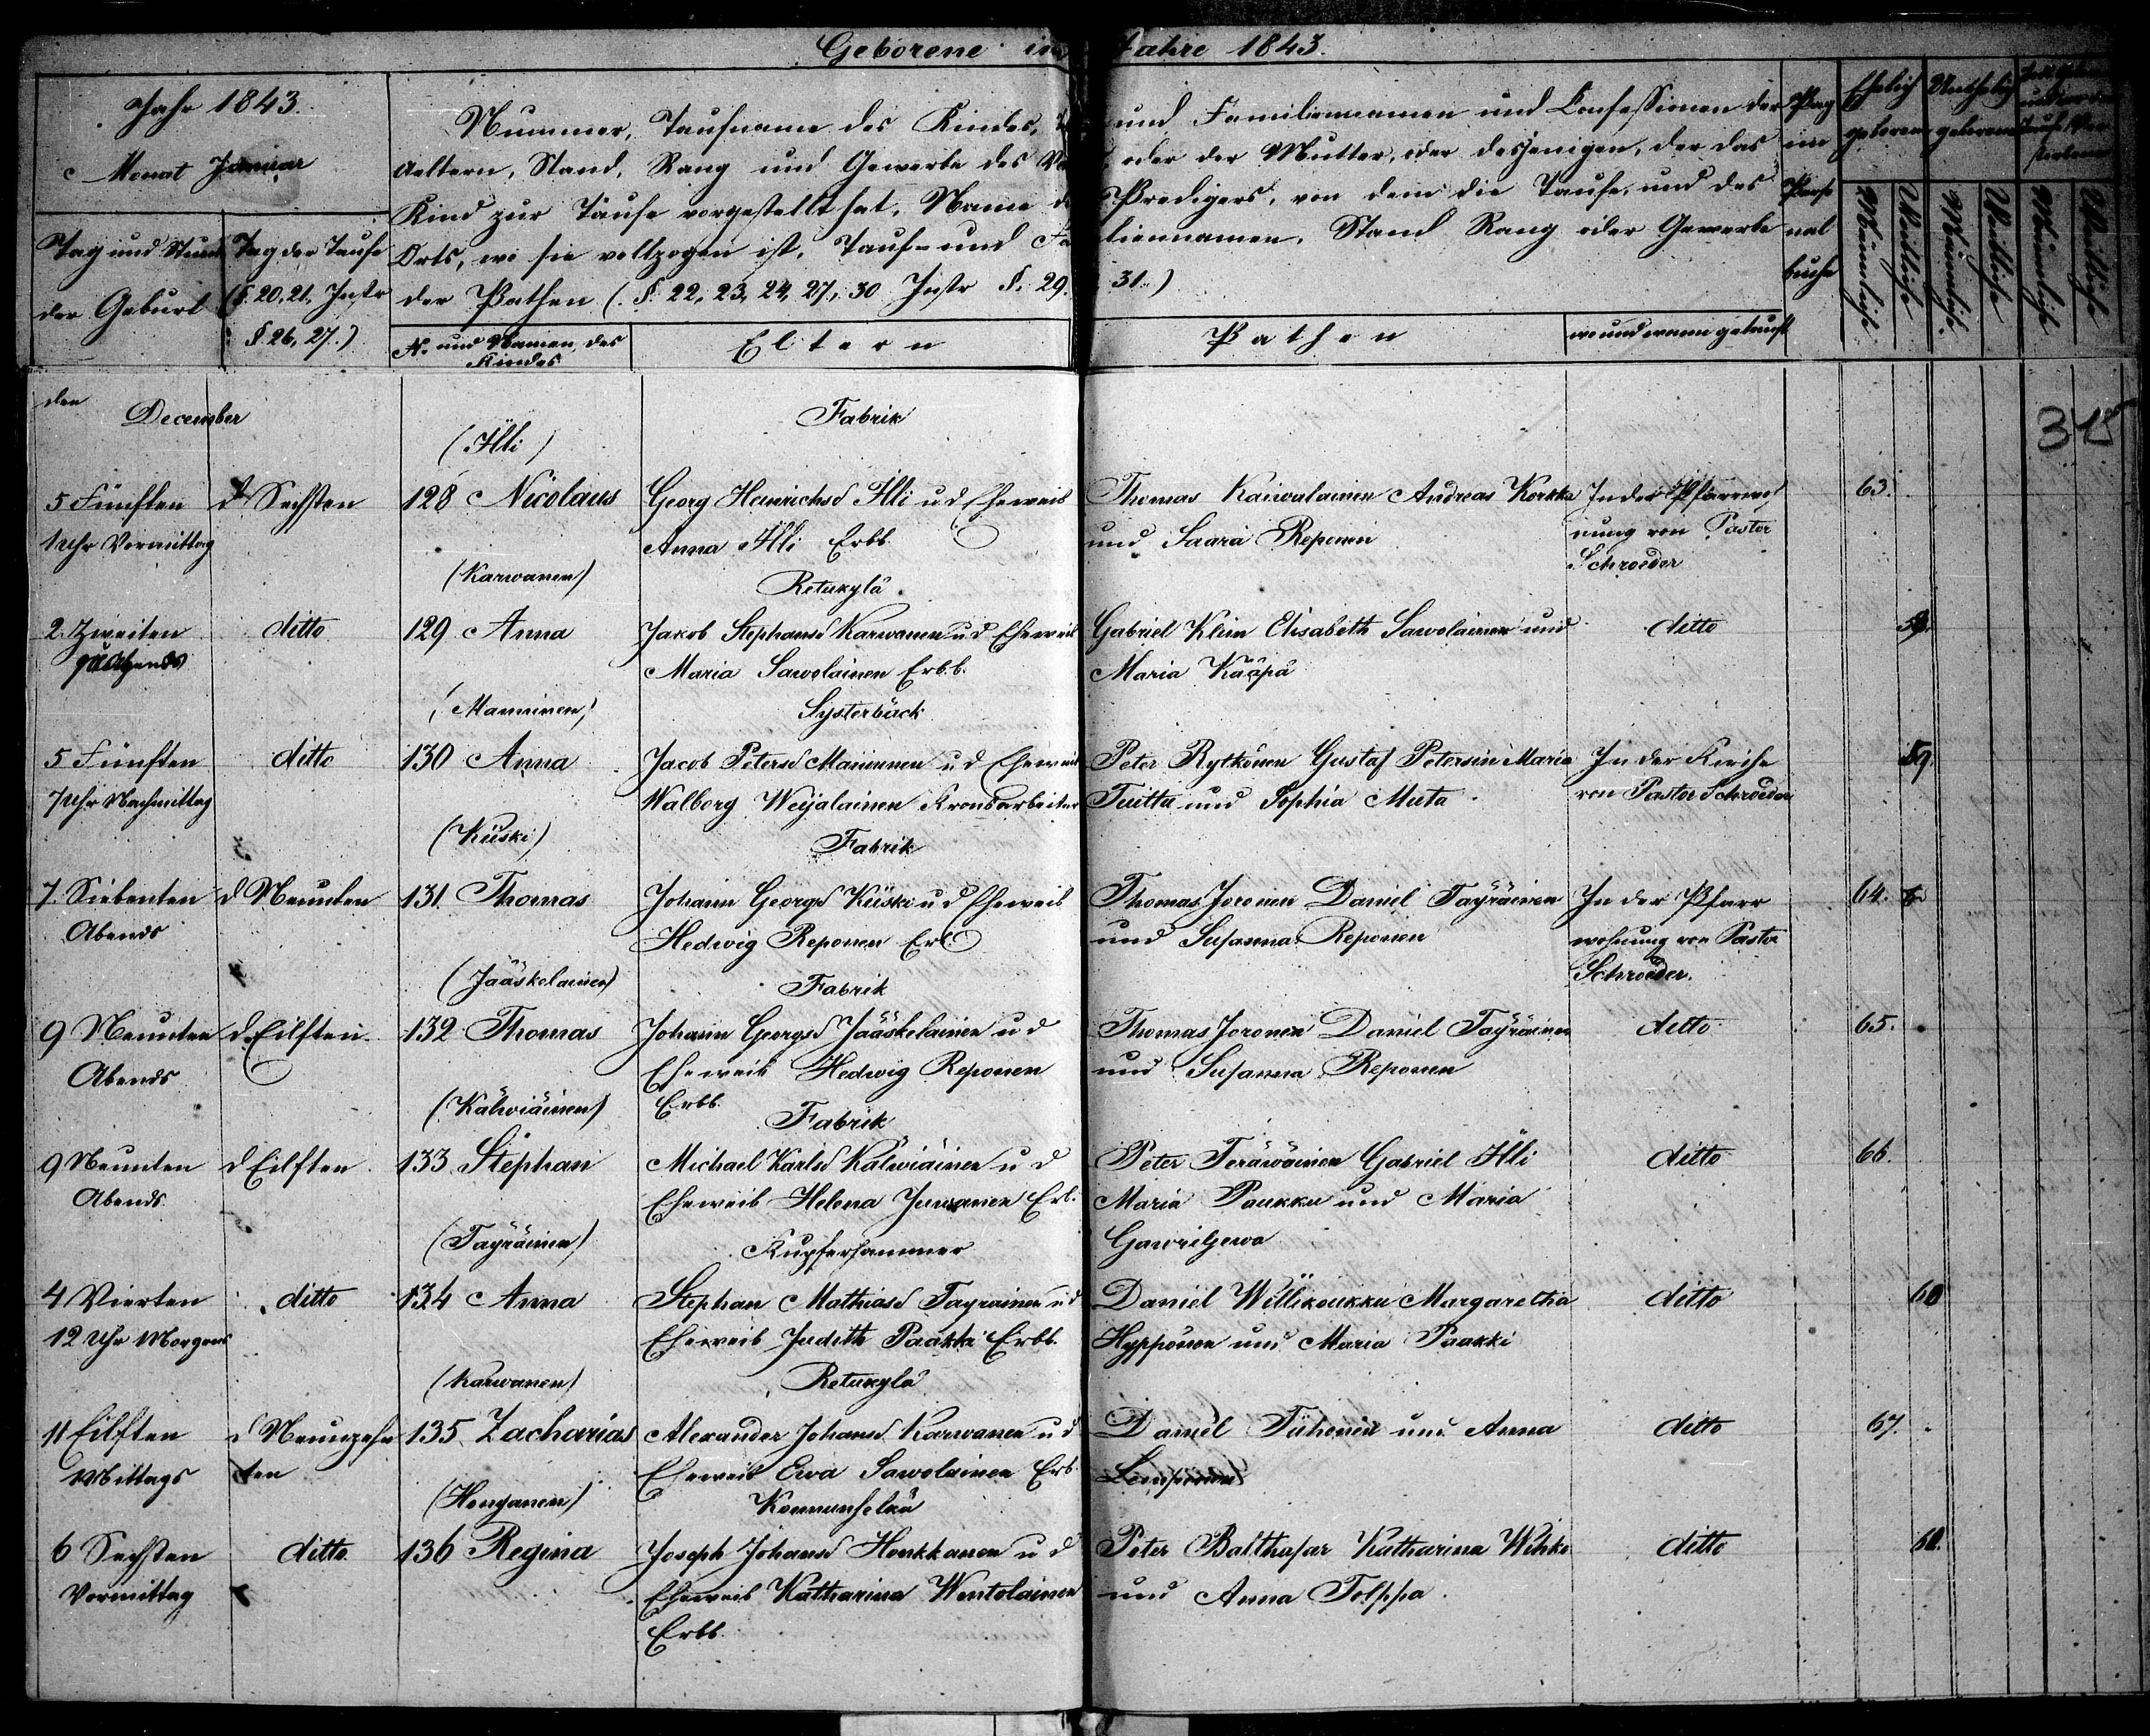 Geborene im Jahre 1843.
Jahr 1843.
Monat Januar
Tag und Stunde
der Geburt
Tag der Taufe
(§. 20, 21, Instr
§ 26, 27.)
Nummer, Taufname des Kindes, und Familiennamen und Confessionen der
Aeltern, Stand, Rang und Gewerbe des oder der Mutter, oder desjenigen, der das
Kind zur Taufe vorgestellt hat, Name des Predigers, von dem die Taufe, und des
Orts, wo sie vollzogen ist, Tauf- und Familiennamen, Stand Rang oder Gewerbe
der Pathen (. §. 22, 23, 24, 27, 30 Instr §. 29. 31.)
N. und Namen des
Kindes
Eltern
Pathen
wo und wann getauft
Pag
im
Perso
nal
buche
Ehelich
geboren
Unehelich
geboren
Männliche
Weibliche
Männliche
Weibliche
Männliche
Weibliche
den
December
315
(Illi)
Fabrik
5 Fünften d Sechsten 128 Nicolaus Georg Heinrichsd Illi u d Eheweib Thomas Andreas Korkka In der 63.
1 Uhr Vormittag Anna Illi Erbb. und Saara Reponen von Pastor
Schroeder
(Karwanen) Retukylä
2. Zweiten ditto 129 Anna Jakob Stephansd Karwanen u d Eheweib Gabriel Klim Elisabeth Sawolainen und ditto
Maria Sawolainen Erb.b. Maria Kääpä
(Manninen) Systerbäck
5 Fünften ditto 130 Anna Jacob Petersd Manninen u d Eheweib Peter Rytkönen Gustaf Petersin Maria In der Kirche 59.
7 Uhr Nachmittag Walborg Weijalainen Kronsarbeiter Tuitta und Sophia Muta von Pastor Schroeder
(Kiiski) Fabrik
7. Siebenten d Neunten 131 Thomas Johann Georgsd Kiiski u d Eheweib Thomas Joronen Daniel Tayräinen In der Pfarr 64.
Abends Hedwig Reponen Erb. und Susanna Reponen wohnung von Pastor
Schroeder.
(Jääskelainen) Fabrik
9 Neunten d. Eilften 132 Thomas Johann Georgsd Jääskelainen u d Thomas Joronen Daniel Tayräinen ditto 65.
Abends Eheweib Hedwig Reponen und Susanna Reponen
Erbb.
(Kälwiäinen) Fabrik
9 Neunten d Eilften 133 Stephan Michael Karlsd Kälwiäinen u d Peter Teräwäinen Gabriel Illi ditto 66.
Abends Eheweib Helena Juwanen Erb. Maria Paukku und Maria
Gawrilgewa
(Tayräinen) Kupferhammer
4 Vierten ditto 134 Anna Stephan Mathiasd Tayrainen u d Daniel Willikoukku Margaretha ditto 60
12 Uhr Morgens Eheweib Judith Paakki Erbb. Hyppönen und Maria Paakki
(Karwanen) Retukylä
11 Eilften d Neunzehn 135 Zacharias Alexander Johansd Karwanen u d Daniel Tiihonen und Anna ditto 67.
Mittags ten Eheweib Ewa Sawolainen Erb.
(Honganen)
6 Sechsten ditto 136 Regina Joseph Johansd Honkkanen u d Peter Balthasar Katharina Wihko ditto
Vormittag Eheweib Katharina Wentolainen und Anna Tolppa
Erbb.